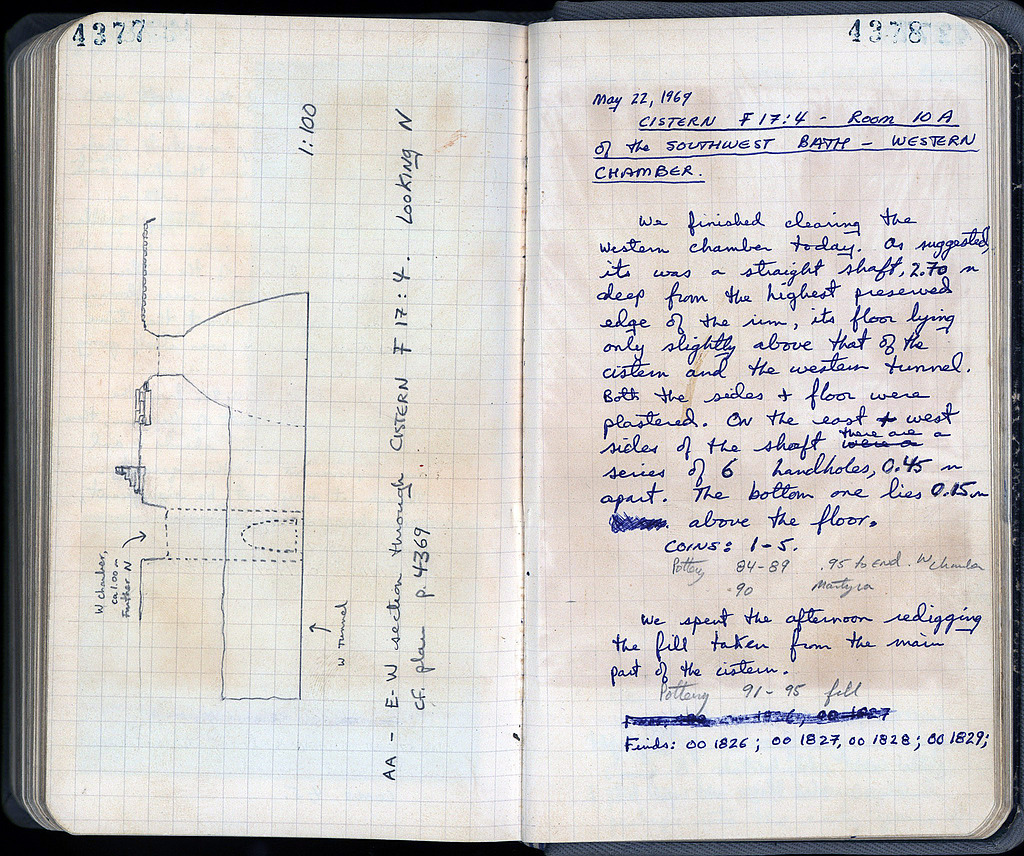 4377
1:100
W chamber,
ca 1.00 m
further N
W tunnel
AA - E-W section through CISTERN F 17:4. LOOKING N
cf. plan p. 4369
4378
May 22, 1969
CISTERN F 17:4 - ROOM 10 A
of the SOUTHWEST BATH - WESTERN
CHAMBER.
We finished clearing the
western chamber today. As suggested,
its was a straight shaft, 2.70 m
deep from the highest preserved
edge of the rim, its floor lying
only slightly above that of the
cistern and the western tunnel.
Both the sides + floor were
plastered. On the east + west
sides of the shaft there are a
series of 6 handholes, 0.45 m
apart. The bottom one lies 0.15 m
above the floor.
COINS: 1-5.
Pottery 84-89 .95 to End. W Chamber
90 Martyra
We spent the afternoon redigging
the fill taken from the main
part of the cistern.
Pottery 91-95 fill
Finds: OO 1826; OO 1827, OO 1828; OO 1829;